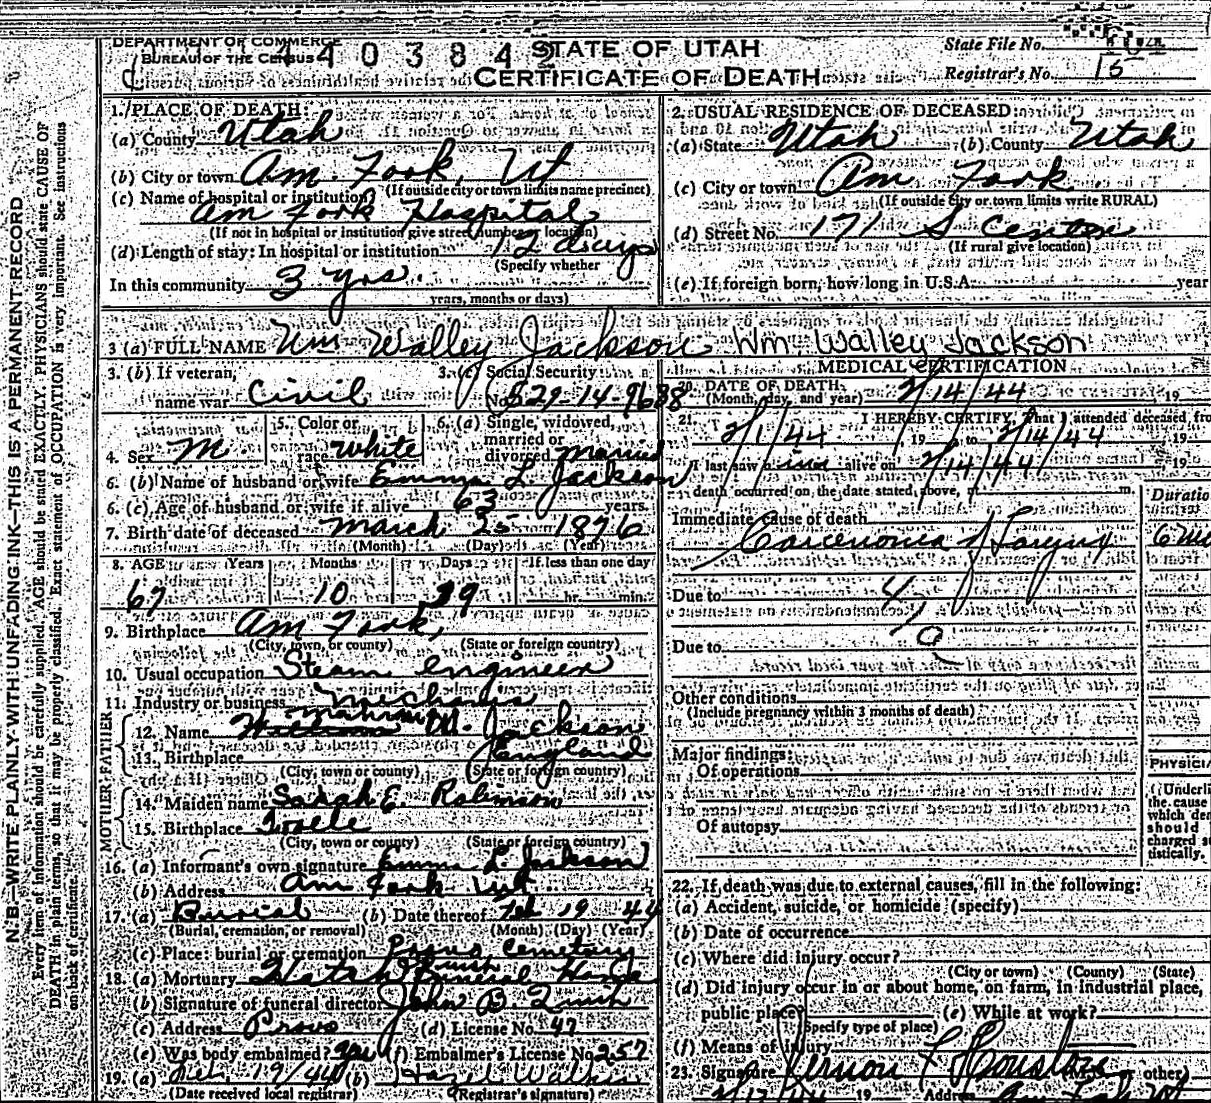 DEPARTMENT OF COMMERCE
BUREAU OF THE CENSUS
440384
STATE OF UTAH
CERTIFICATE OF DEATH
State File No.
Registrar's No. 15
N.B.—WRITE PLAINLY WITH UNFADING INK—THIS IS A PERMANENT RECORD
Every item of information should be carefully supplied. AGE should be stated EXACTLY. PHYSICIANS should state CAUSE OF
DEATH in plain terms, so that it may be properly classified. Exact statement of OCCUPATION is very important. See instructions
on back of certificate.
1. PLACE OF DEATH:
(a) County Utah
(b) City or town Am. Fork, Ut
(If outside city or town limits name precinct)
(c) Name of hospital or institution?
Am Fork Hospital
(If not in hospital or institution give street number or location)
(d) Length of stay: In hospital or institution 12 days
(Specify whether
In this community 3 yrs.
years, months or days)
2. USUAL RESIDENCE OF DECEASED:
(a) State Utah (b) County Utah
(c) City or town Am Fork
(If outside city or town limits write RURAL)
(d) Street No. 171 S Center
(If rural give location)
(e) If foreign born, how long in U.S.A. year
3 (a) FULL NAME Wm Walley Jackson Wm Walley Jackson
3. (b) If veteran,
name war Civil
3. (c) Social Security
No. 529-14-9688
4. Sex M.
5. Color or
race White
6. (a) Single, widowed,
married or
divorced married
6. (b) Name of husband or wife Emma L Jackson
6. (c) Age of husband or wife if alive 63 years.
7. Birth date of deceased March 25 1876
(Month) (Day) (Year)
8. AGE Years Months Days If less than one day
67 10 hr. min.
9. Birthplace Am Fork,
(City, town, or county) (State or foreign country)
10. Usual occupation Steam engineer
11. Industry or business Mechanic
FATHER
12. Name M. Jackson
13. Birthplace England
(City, town or county) (State or foreign country)
MOTHER
14. Maiden name Sarah E. Robinson
15. Birthplace Tooele
(City, town or county) (State or foreign country)
16. (a) Informant's own signature Emma L. Jackson
(b) Address Am Fork Ut.
17. (a) Burial (b) Date thereof Feb 19 44
(Burial, cremation, or removal) (Month) (Day) (Year)
(c) Place: burial or cremation Provo Cemetery
18. (a) Mortuary Funeral Home
(b) Signature of funeral director John B.
(c) Address Provo (d) License No. 47
(e) Was body embalmed? Yes (f) Embalmer's License No. 257
19. (a) 19/44 (b) Hazel
(Date received local registrar) (Registrar's signature)
MEDICAL CERTIFICATION
20. DATE OF DEATH 2/14/44 19
(Month, day, and year)
21. I HEREBY CERTIFY, That I attended deceased fro
2/1/44 19 to 2/14/44 19
I last saw him alive on 2/14/44 19
death occurred on the date stated above, at m.
Duratio
Immediate cause of death
Carcinoma of Larynx 6 mo
Due to
Due to
Other conditions
(Include pregnancy within 3 months of death)
Major findings:
Of operations
Of autopsy
PHYSICI
Underli
the cause
which dea
should
charged s
tistically.
22. If death was due to external causes, fill in the following:
(a) Accident, suicide, or homicide (specify)
(b) Date of occurrence
(c) Where did injury occur?
(City or town) (County) (State)
(d) Did injury occur in or about home, on farm, in industrial place,
public place? (e) While at work?
(Specify type of place)
(f) Means of injury
23. Signature Vernon F Houston other)
2/17/44 19 Address Am Fork Ut